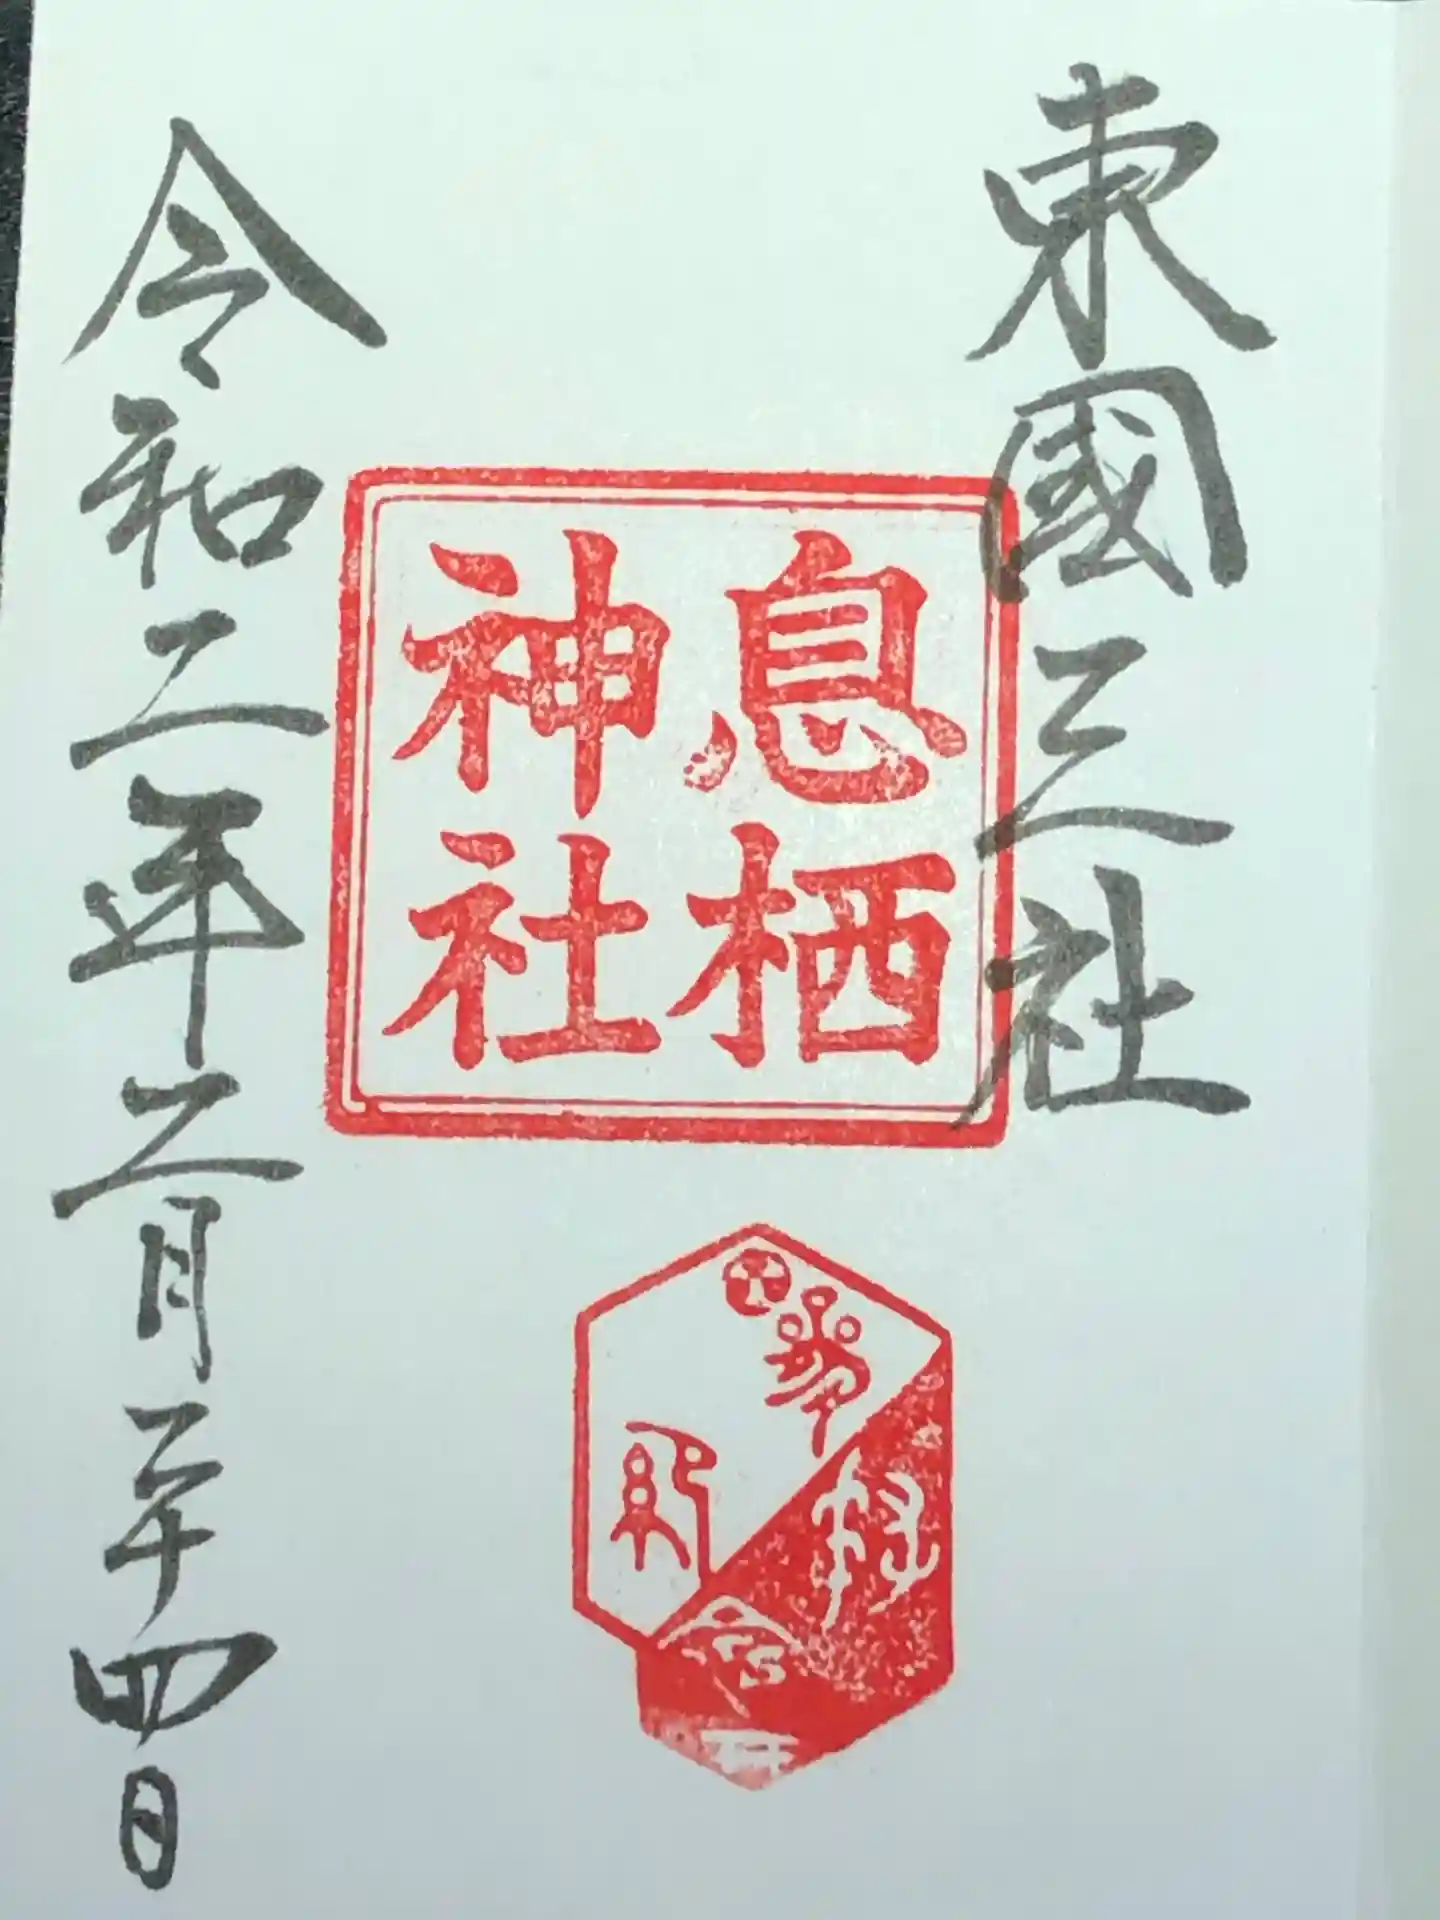 東國三社
息栖
神社
令和二年二月二十四日